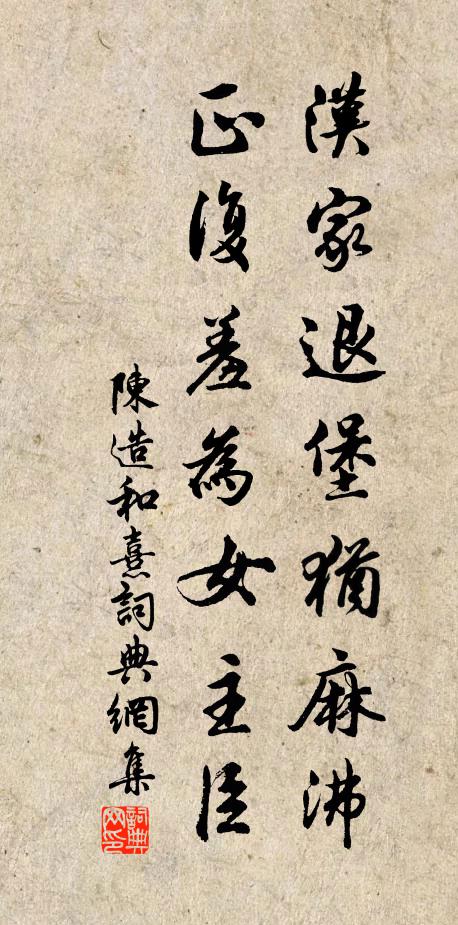 漢家退堡猶麻沸
正復羞為女主臣
陳造和熹詞典網集
詞典網印